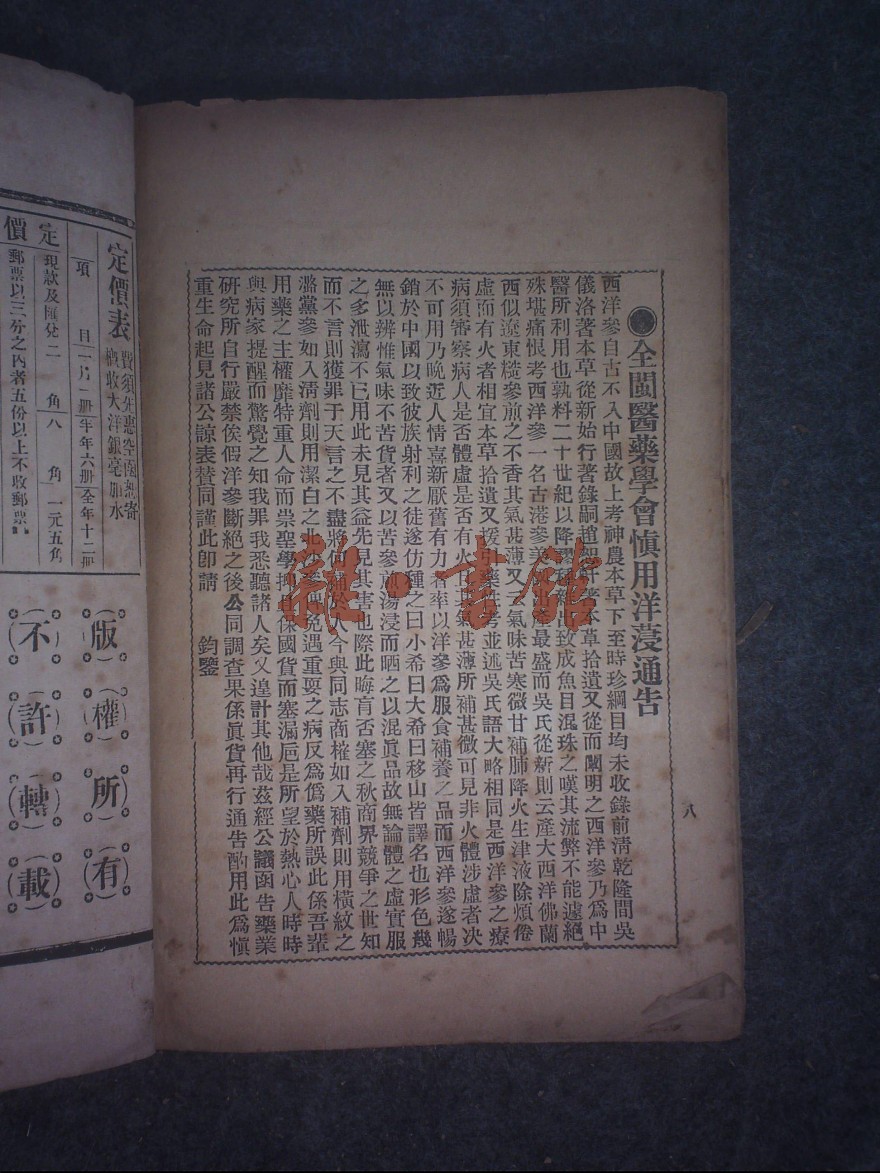 ●全閩醫藥學會愼用洋蓡通告
西洋參自古不入中國故上考神農本草下至時珍綱目均未收錄前清乾隆間吳
儀洛著本草從新始行著錄嗣趙恕軒著本草拾遺又從而闡明之西洋參乃爲中
醫所利用也孰料二十世紀以降謬種新出致成魚目混珠之嘆其流弊不能遽絕
殊堪痛恨考西洋參一名古港參美產最盛而吳氏從新則云產大西洋佛蘭
西似遼東糙參煎之不香其氣甚薄又云氣味苦寒微甘補肺降火生津液除煩倦
虛而有火者相宜本草拾遺又援引藥性考並述吳氏語大略相同是西洋參之療
病須審察病人是否體虛是否有火且其氣甚薄所補甚微可見非火體涉虛者决
不可用乃晚近人情喜新厭舊有力者率以洋參爲服食補養之品而西洋參遂暢
銷於中國以致彼族射利之徒遂仿種之曰小希曰大希曰移山皆譯名也形色幾
無以辨惟氣味不苦貨者又以苦參煎湯浸而晒之以混眞品故無論體之虛實服
之多泄瀉不已用此未見其益先見其害也際此晦盲否塞之秋商界競爭之世知
而不言則獲罪于天言之不盡將何補於人今與同志商榷如入補劑則用橫紋之
潞黨參如入清劑則用潔白之北沙參俾免遇重要之病反爲僞藥所誤此係吾輩
用藥之主權靡特重人命而崇聖學抑且保國貨而塞漏巵是所望於熱心人時時
與病家提醒而驚覺之知我罪我悉聽諸人矣又遑計其他哉茲經公議函告藥業
研究所自行嚴禁俟假洋參斷絕之後公同調查果係眞貨再行通告酌用此爲愼
重生命起見諸公諒表贊同謹此卽請　　鈞鑒
八
雜·書館
定價表
項目 一月一册 半年六册 全年十二册
定價 現款及匯兌 二角 八角 一元五角
郵票以三分之內者五份以上不收郵票
版權所有
不許轉載